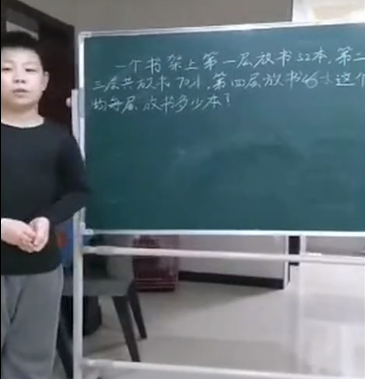 一个书架上第一层放书32本,第二
三层共放书70本,第四层放书46本,这个
均每层放书多少本?